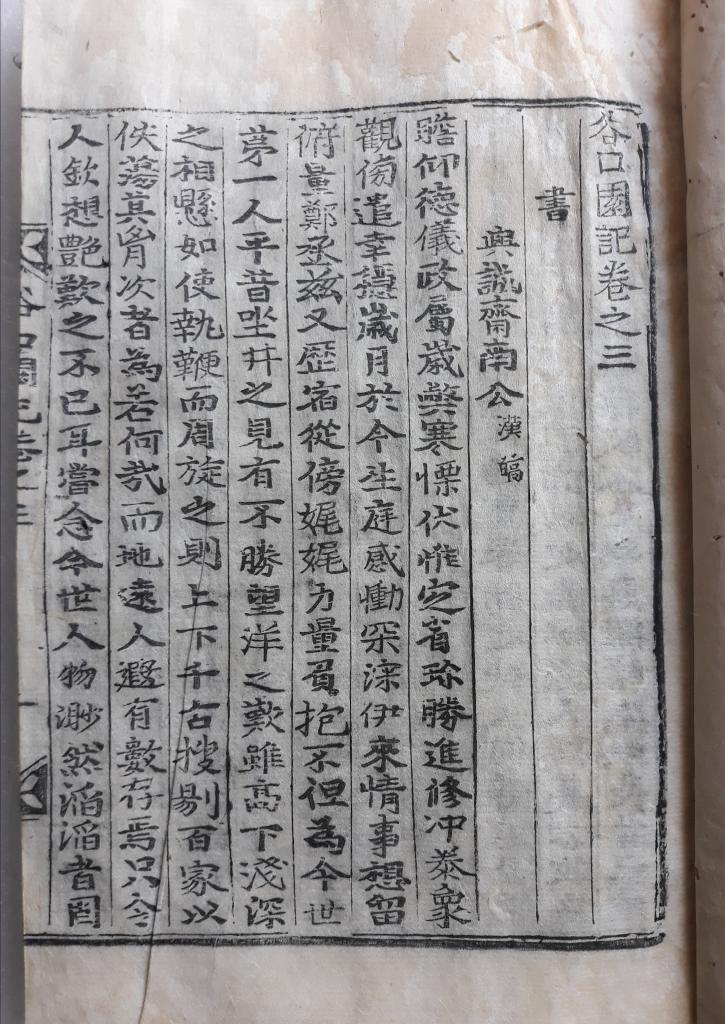 谷口園記卷之三
書
與說齋南公漢皜
瞻仰德儀政屬歲弊寒慄伏惟定省珎勝進修冲泰象
觀傍遣幸穩歲月於今生庭感慟罙深伊來情事想留
俯量鄭丞玆又歷宿從傍娓娓力量負抱不但為今世
苐一人平昔坐井之見有不勝望洋之歎雖高下淺深
之相懸如使執鞭而周旋之則上下千古搜剔百家以
佚蕩其胷次者為若何㢤而地遠人遐有數存焉只今
人欽想艶歎之不已耳嘗念今世人物渺然滔滔者罔